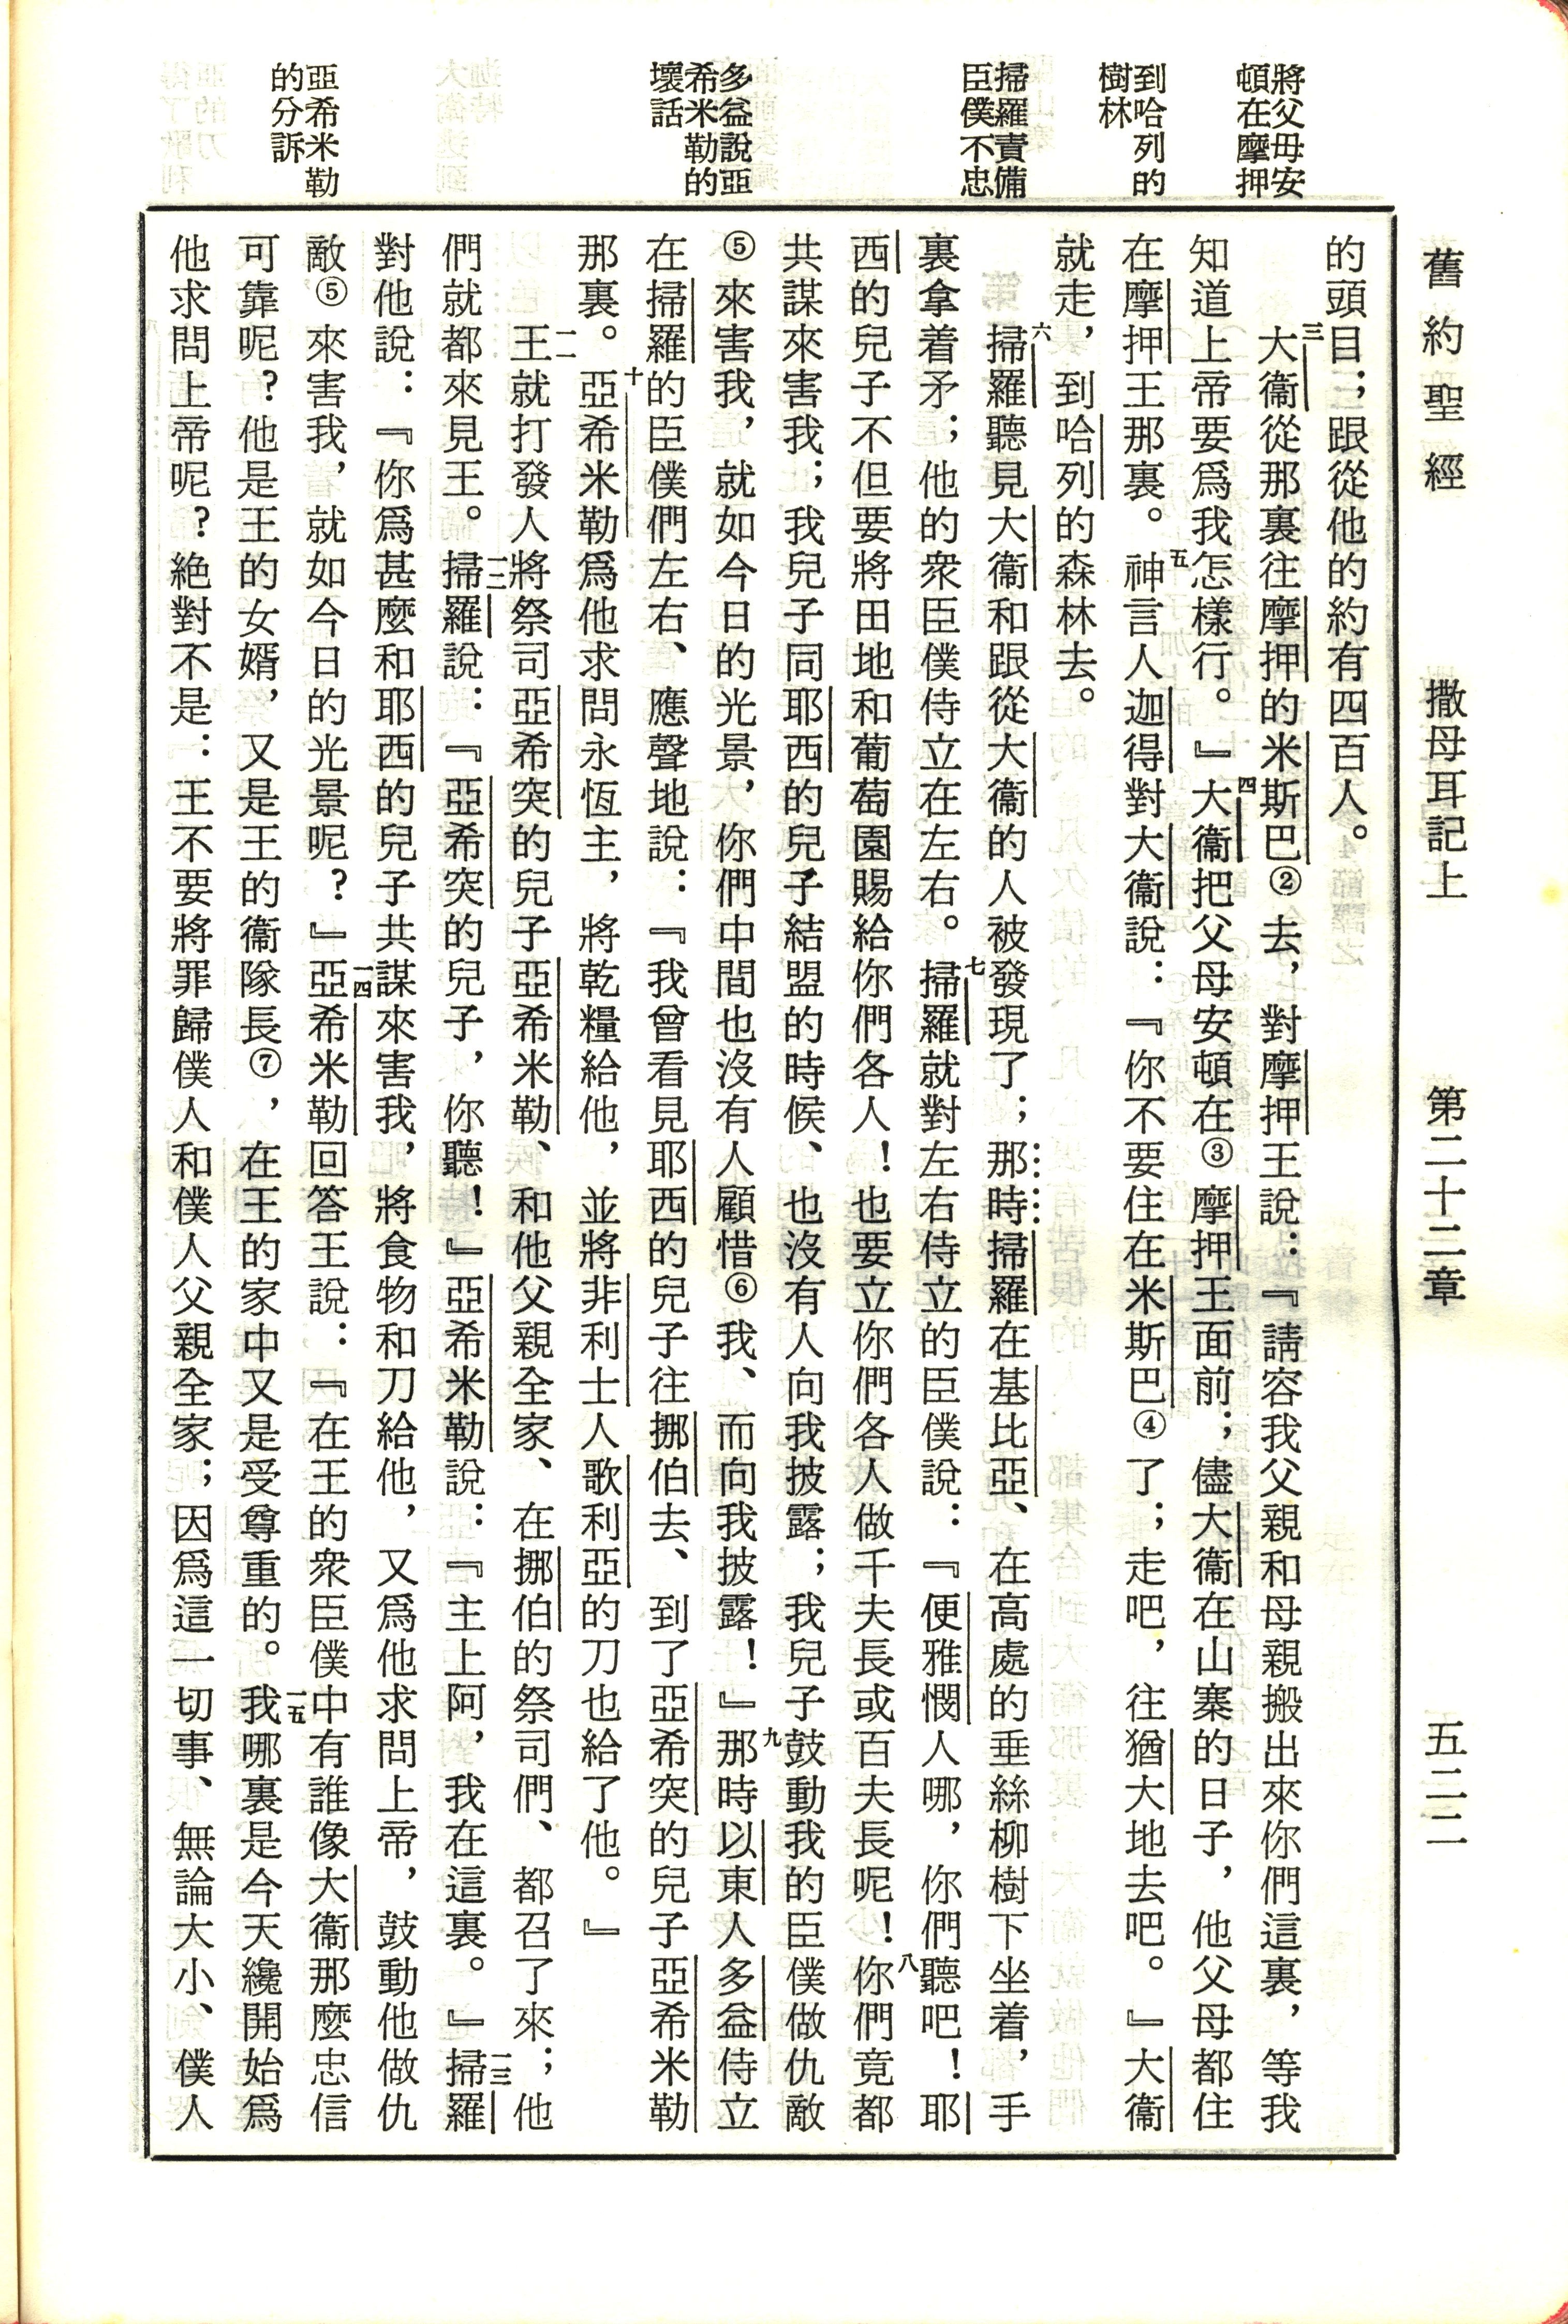 舊約聖經　撒母耳記上　第二十二章　五二二
將父母安
頓在摩押
到哈列的
樹林
掃羅責備
臣僕不忠
多益說亞
希米勒的
壞話
亞希米勒
的分訴
的頭目；跟從他的約有四百人。
三大衞從那裏往摩押的米斯巴②去，對摩押王說：『請容我父親和母親搬出來你們這裏，等我
知道上帝要爲我怎樣行。』四大衞把父母安頓在③摩押王面前；儘大衞在山寨的日子，他父母都住
在摩押王那裏。五神言人迦得對大衞說：『你不要住在米斯巴④了；走吧，往猶大地去吧。』大衞
就走，到哈列的森林去。
六掃羅聽見大衞和跟從大衞的人被發現了；那時掃羅在基比亞、在高處的垂絲柳樹下坐着，手
裏拿着矛；他的衆臣僕侍立在左右。七掃羅就對左右侍立的臣僕說：『便雅憫人哪，你們聽吧！耶
西的兒子不但要將田地和葡萄園賜給你們各人！也要立你們各人做千夫長或百夫長呢！八你們竟都
共謀來害我；我兒子同耶西的兒子結盟的時候、也沒有人向我披露；我兒子鼓動我的臣僕做仇敵
⑤來害我，就如今日的光景，你們中間也沒有人顧惜⑥我、而向我披露！』九那時以東人多益侍立
在掃羅的臣僕們左右、應聲地說：『我曾看見耶西的兒子往挪伯去、到了亞希突的兒子亞希米勒
那裏。十亞希米勒爲他求問永恆主，將乾糧給他，並將非利士人歌利亞的刀也給了他。』
一一王就打發人將祭司亞希突的兒子亞希米勒、和他父親全家、在挪伯的祭司們、都召了來；他
們就都來見王。一二掃羅說：『亞希突的兒子，你聽！』亞希米勒說：『主上阿，我在這裏。』一三掃羅
對他說：『你爲甚麼和耶西的兒子共謀來害我，將食物和刀給他，又爲他求問上帝，鼓動他做仇
敵⑤來害我，就如今日的光景呢？』一四亞希米勒回答王說：『在王的衆臣僕中有誰像大衞那麼忠信
可靠呢？他是王的女婿，又是王的衞隊長⑦，在王的家中又是受尊重的。一五我哪裏是今天纔開始爲
他求問上帝呢？絕對不是：王不要將罪歸僕人和僕人父親全家；因爲這一切事、無論大小、僕人